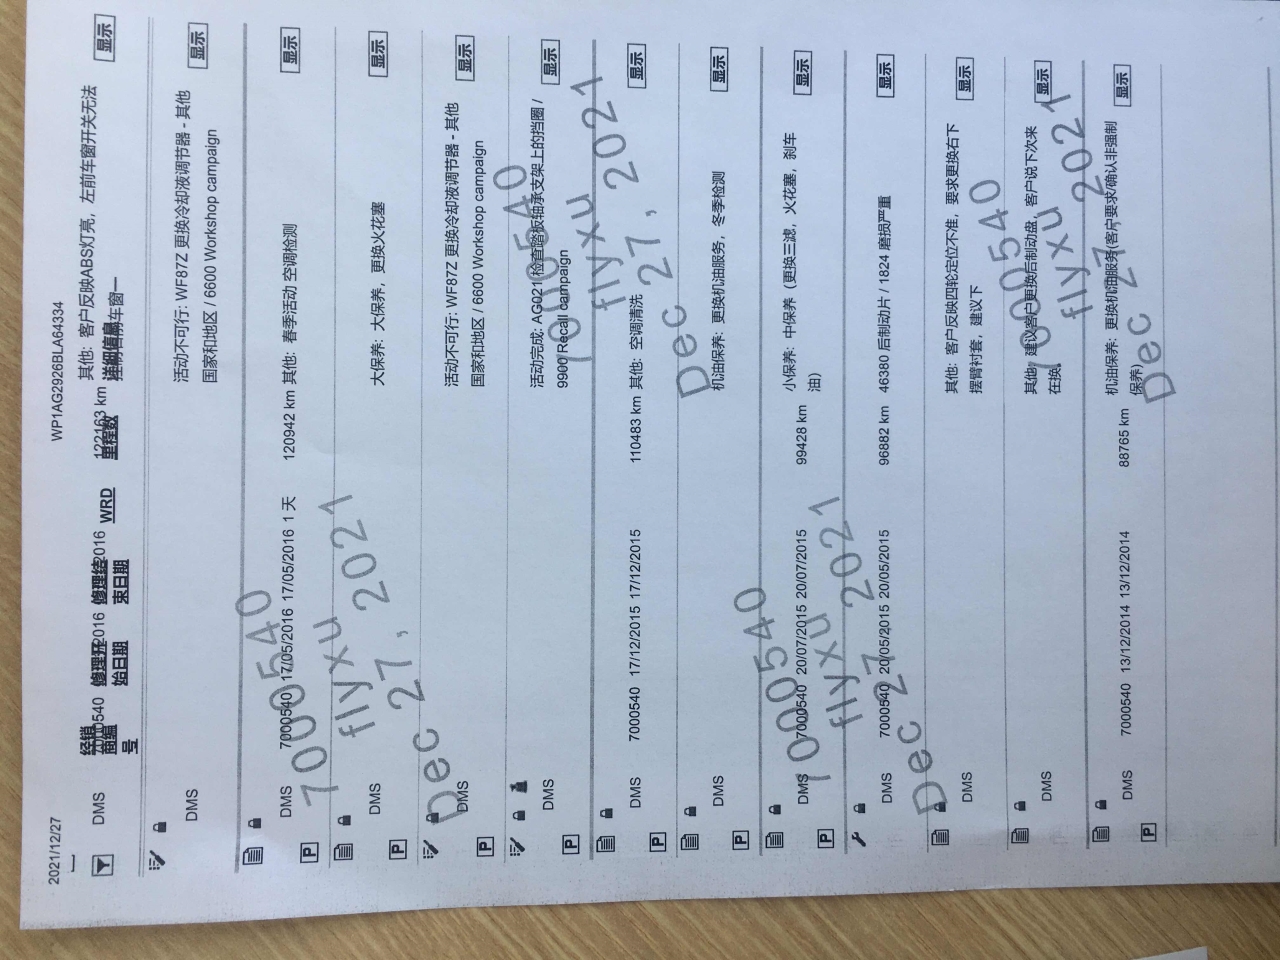 2021/12/27
WP1AG2926BLA64334
DMS
经销商编号
修理开始日期
修理结束日期
WRD
里程数
122163 km
其他: 客户反映ABS灯亮，左前车窗开关无法
显示
DMS
活动不可行: WF87Z 更换冷却液调节器 - 其他
国家和地区 / 6600 Workshop campaign
显示
DMS 7000540 17/05/2016 17/05/2016 1 天 120942 km 其他: 春季活动 空调检测 显示
P
DMS 大保养: 大保养，更换火花塞 显示
P
DMS 活动不可行: WF87Z 更换冷却液调节器 - 其他 显示
国家和地区 / 6600 Workshop campaign
P
DMS 活动完成: AG021 检查踏板轴承支架上的挡圈 / 显示
9900 Recall campaign
P
DMS 7000540 17/12/2015 17/12/2015 110483 km 其他: 空调清洗 显示
P
DMS 机油保养: 更换机油服务，冬季检测 显示
P
DMS 7000540 20/07/2015 20/07/2015 99428 km 小保养: 中保养（更换三滤，火花塞，刹车 显示
油）
P
DMS 7000540 20/05/2015 20/05/2015 96882 km 46380 后制动片 / 1824 磨损严重 显示
DMS 其他: 客户反映四轮定位不准，要求更换右下 显示
摆臂衬套，建议下
DMS 其他: 建议客户更换后制动盘，客户说下次来 显示
在换。
DMS 7000540 13/12/2014 13/12/2014 88765 km 机油保养: 更换机油服务(客户要求/确认非强制 显示
保养)
P
7000540
flyxu
Dec 27, 2021
7000540
flyxu
Dec 27, 2021
7000540
flyxu
Dec 27 2021
7000540
flyxu
Dec 27 2021